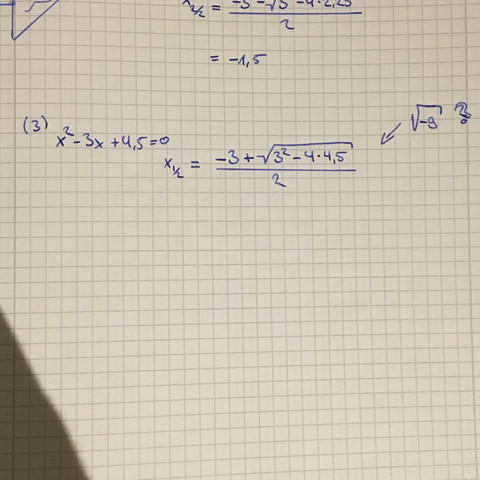 x₂/₂ = (-3 - √3² - 4·2,25) / 2
= -1,5
(3) x² - 3x + 4,5 = 0
x₁/₂ = (-3 + √(3² - 4·4,5)) / 2
√-9 ?